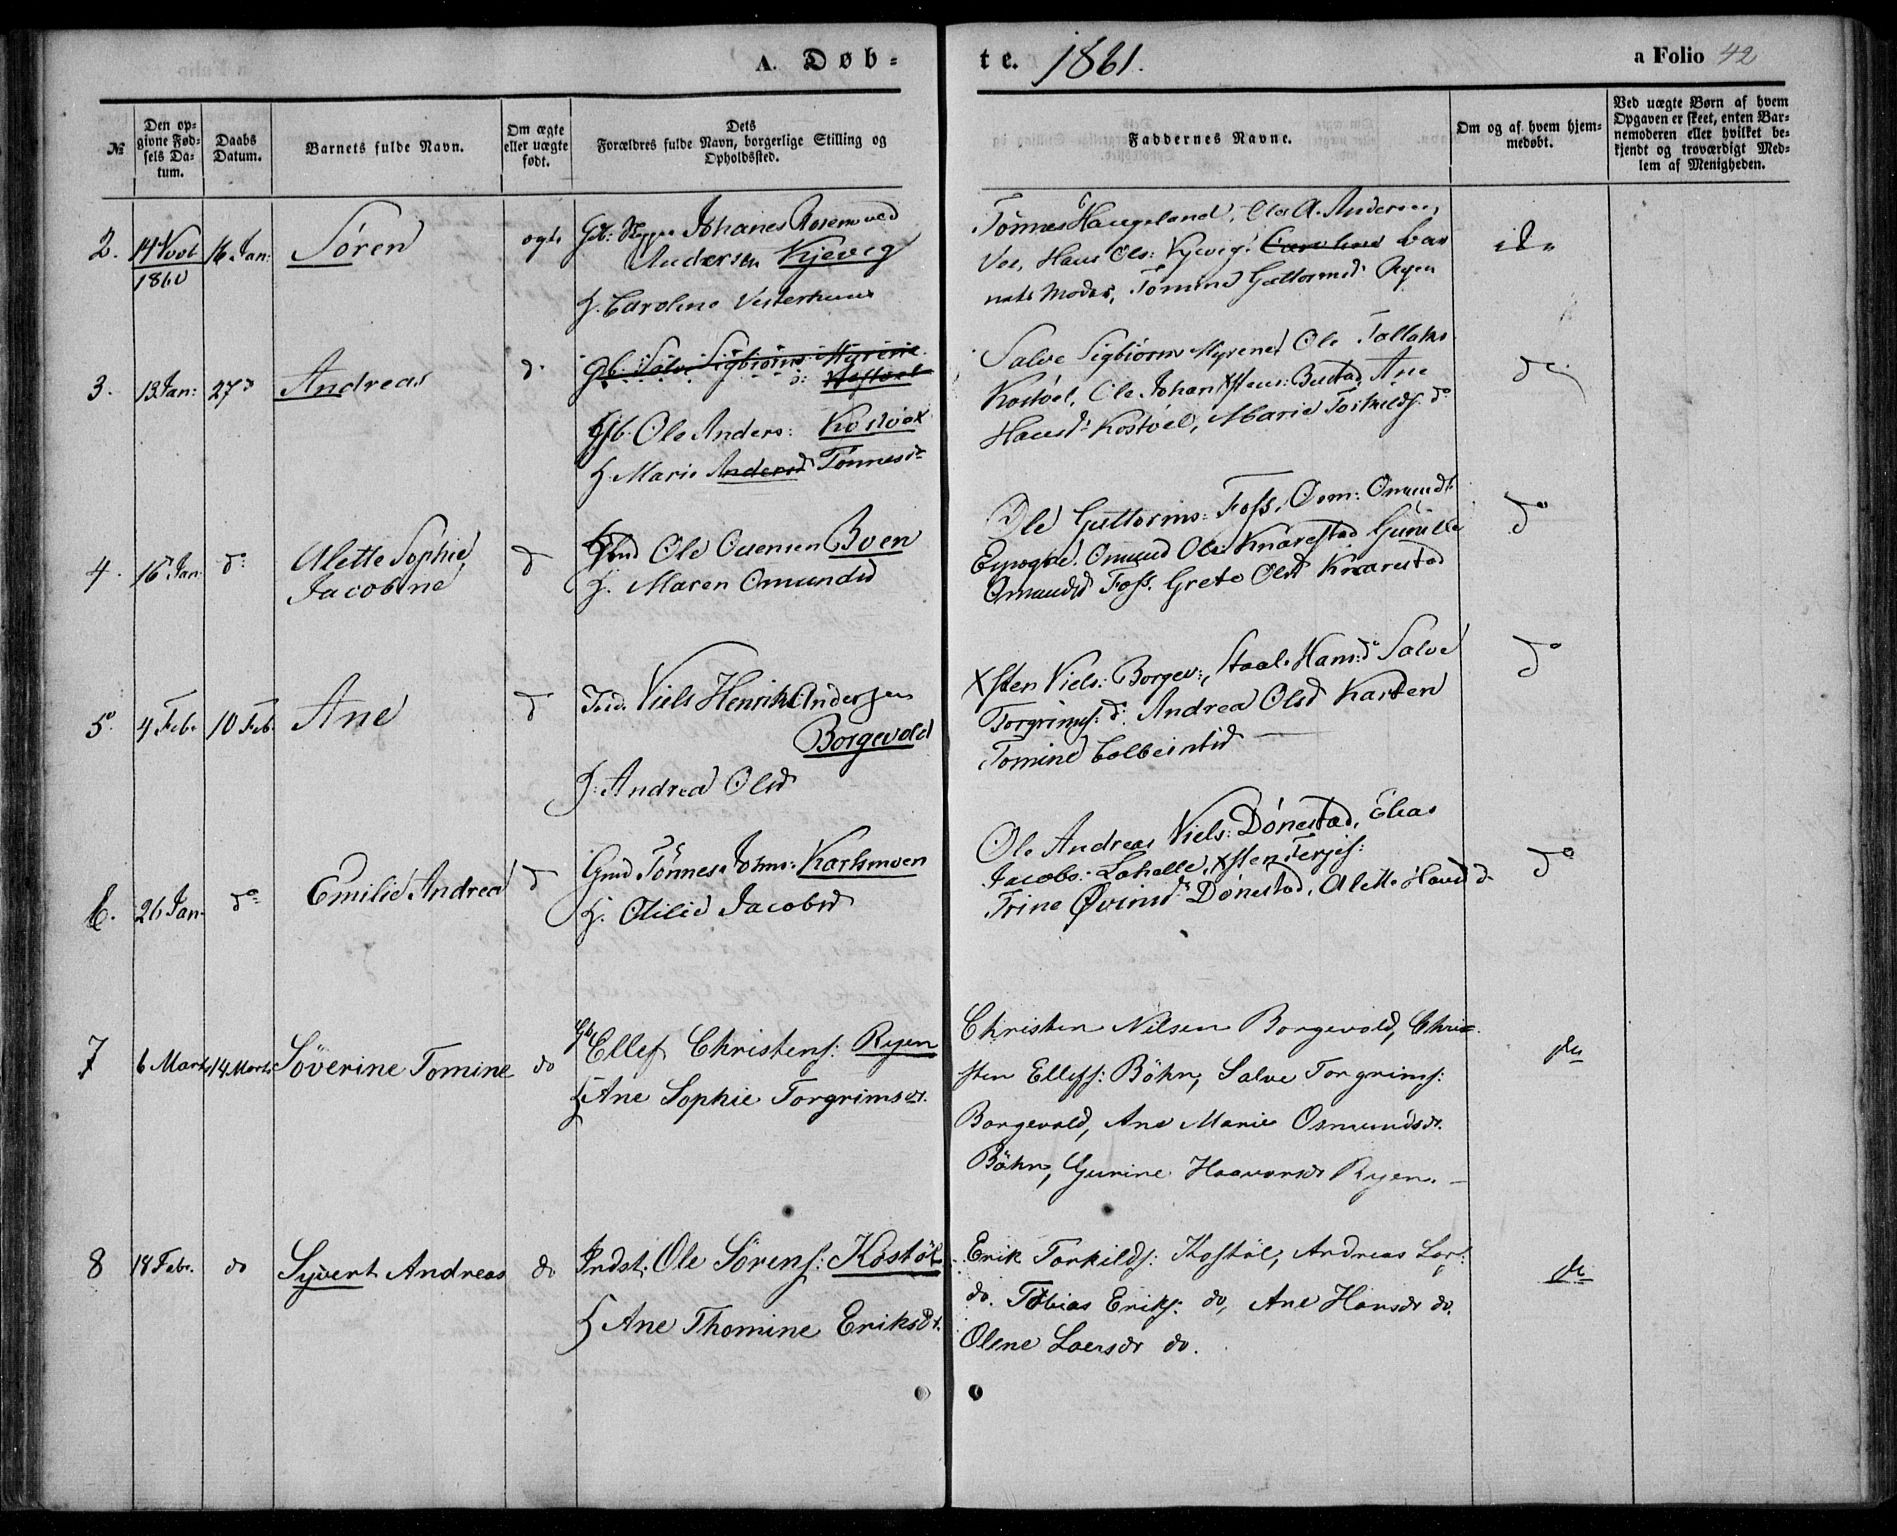 A. Døb-
te. 1861.
a Folio 42
№
Den op-
givne Fød-
sels Da-
tum.
Daabs
Datum.
Barnets fulde Navn.
Om ægte
eller uægte
født.
Dets
Forældres fulde Navn, borgerlige Stilling og
Opholdssted.
Faddernes Navne.
Om og af hvem hjem-
medøbt.
Ved uægte Børn af hvem
Opgaven er skeet, enten Bar-
nemoderen eller hvilket be-
kjendt og troværdigt Med-
lem af Menigheden.
2. 14 Novbr
1860
16 Jan:
Sören
Johanes Rosenvold
Andersen Kjevig
H. Caroline Vesterhuus
Tønnes Haugeland, Ole A. Andersen,
Voe, Hans Ols: Kjevig, Caroline bar
nets Moder, Tomine Guttormsd Ryen
3. 13 Jan: 27 d
Andreas
d.
Gb: Salve Sigbiörns: Myrene
Gb. Ole Anders: Kostöel
H. Marie Andersd Tönnesd
Salve Sigbiörns Myrene Ole Tallaks
Kostöel, Ole Johan Xstens: Bustad, Ane
Hansd: Kostöel, Marie Torkildsd. do
do
4. 16 Jan: do
Alette Sophie
Jacobine
d
Ole Ossensen Boen
H. Maren Omundsd
Ole Guttorms: Foss, Osm: Omunds
Omund Ols: Knarestad Gunille
Omundsd Foss. Grete Olsd Knarestad
do
5. 4 Feb. 10 Feb.
Ane
d
Niels Henrik Andersen
Borgevold
H: Andrea Olsd
Xsten Niels: Borgev:, Staale Hans: do Salve
Torgrims: d: Andrea Olsd Karsten
Tomine
do
6. 26 Jan. do
Emilie Andrea
d
Tönnes Johns: Karlsmoen
H. Otilie Jacobsd
Ole Andreas Niels: Dönestad, Elias
Jacobs: Lohelle, Xsten Terjes:
Trine Øvindsd Dönestad, Alette d-
do
7 6 Marts 14 Marts
Söverine Tomine
do
Gb Ellef Christens: Ryen
H Ane Sophie Torgrimsdr.
Christen Nilsen Borgevold, Chri-
sten Ellefs: Böhn, Salve Torgrims:
Borgevold, Ane Marie Osmundsdr.
Böhn, Gurine Haavorsdr Ryen. —
do
8 18 Febr. do
Syvert Andreas
do
Indst: Ole Sörens: Kostöl
H Ane Thomine Eriksdr.
Erik Torkilds: Kostöl, Andreas Lars:
do. Tobias Eriks: do, Ane Hansdr do.
Olene Laersdr do.
do